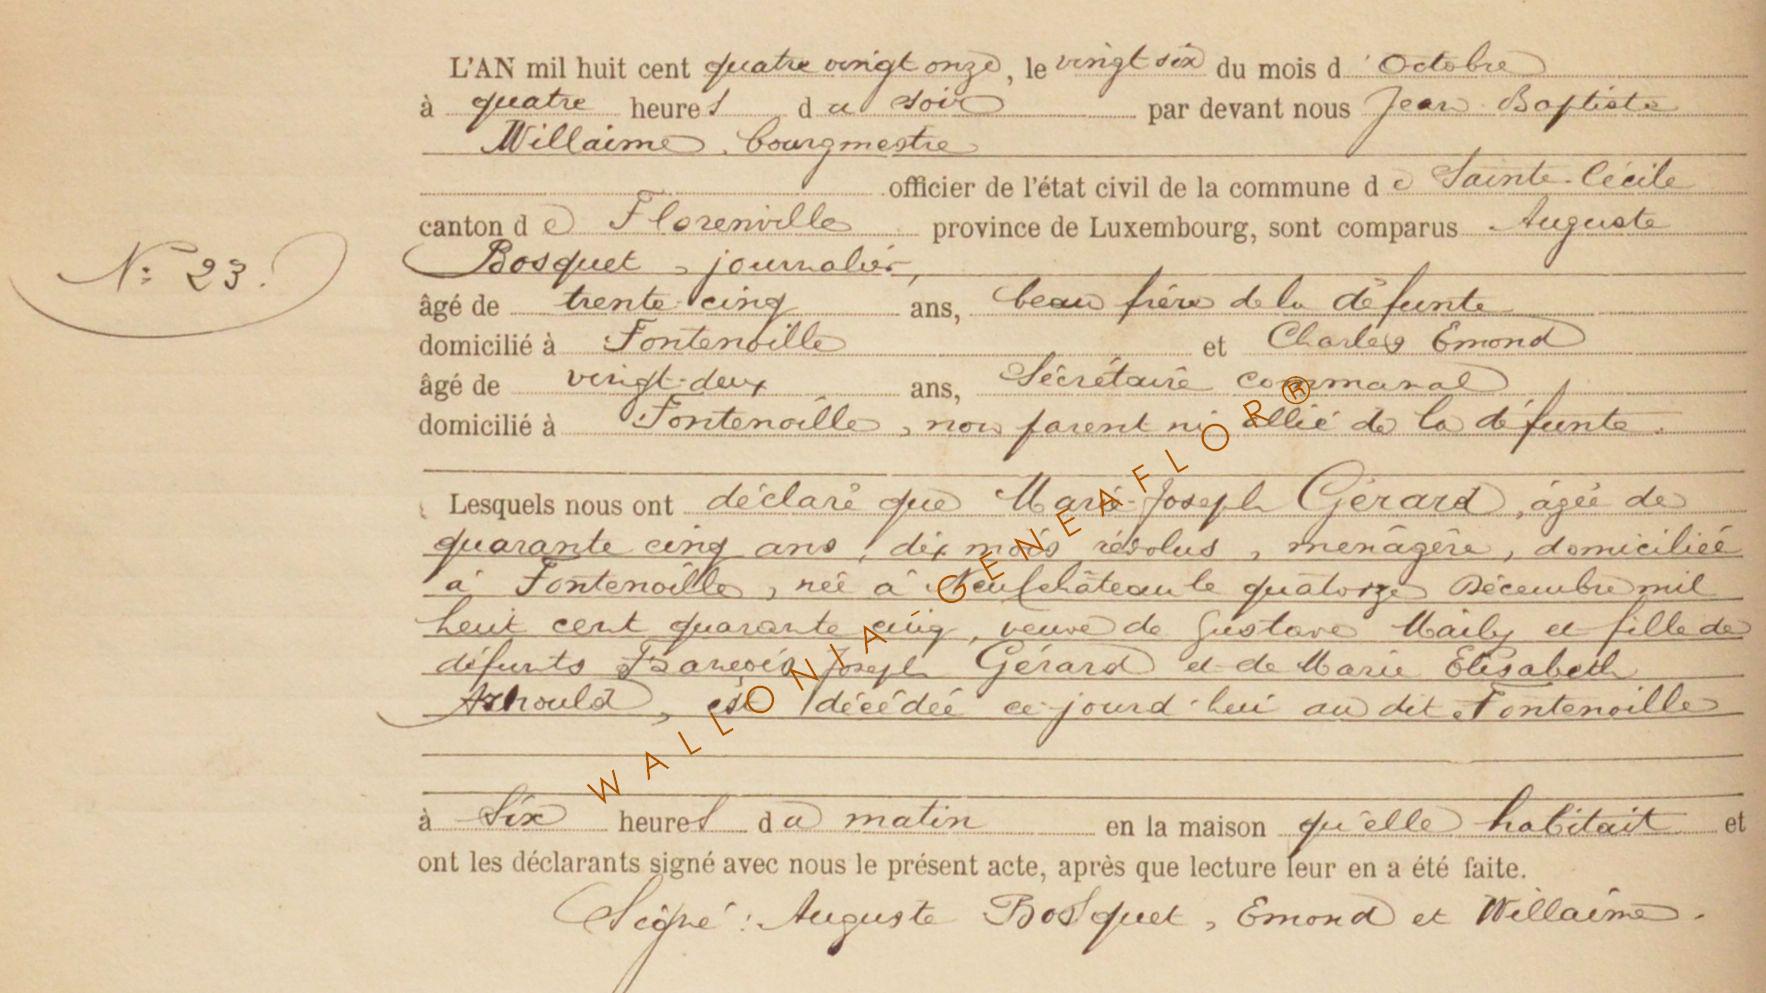 L'AN mil huit cent quatre vingt onze, le vingt six du mois d'Octobre
à quatre heures du soir par devant nous Jean Baptiste
Willaime, bourgmestre
officier de l'état civil de la commune de Sainte-Cécile
canton de Florenville province de Luxembourg, sont comparus Auguste
Bosquet, journalier,
N: 23.
âgé de trente-cinq ans, beau frère de la défunte
domicilié à Fontenoille et Charles Emond
âgé de vingt-deux ans, Sécrétaire communal
domicilié à Fontenoille, non parent ni allié de la défunte.
Lesquels nous ont déclaré que Marie-Joseph Gérard, âgée de
quarante cinq ans, dix mois révolus, ménagère, domiciliée
à Fontenoille, née à Neufchâteau le quatorze Décembre mil
huit cent quarante cinq, veuve de Gustave Maily et fille de
défunts François Joseph Gérard et de Marie Elisabeth
Arnould, est décédée ce jourd'hui au dit Fontenoille
à Six heures du matin en la maison qu'elle habitait et
ont les déclarants signé avec nous le présent acte, après que lecture leur en a été faite.
Signé: Auguste Bosquet, Emond et Willaime.
WALLONIA GENEAFLOR®